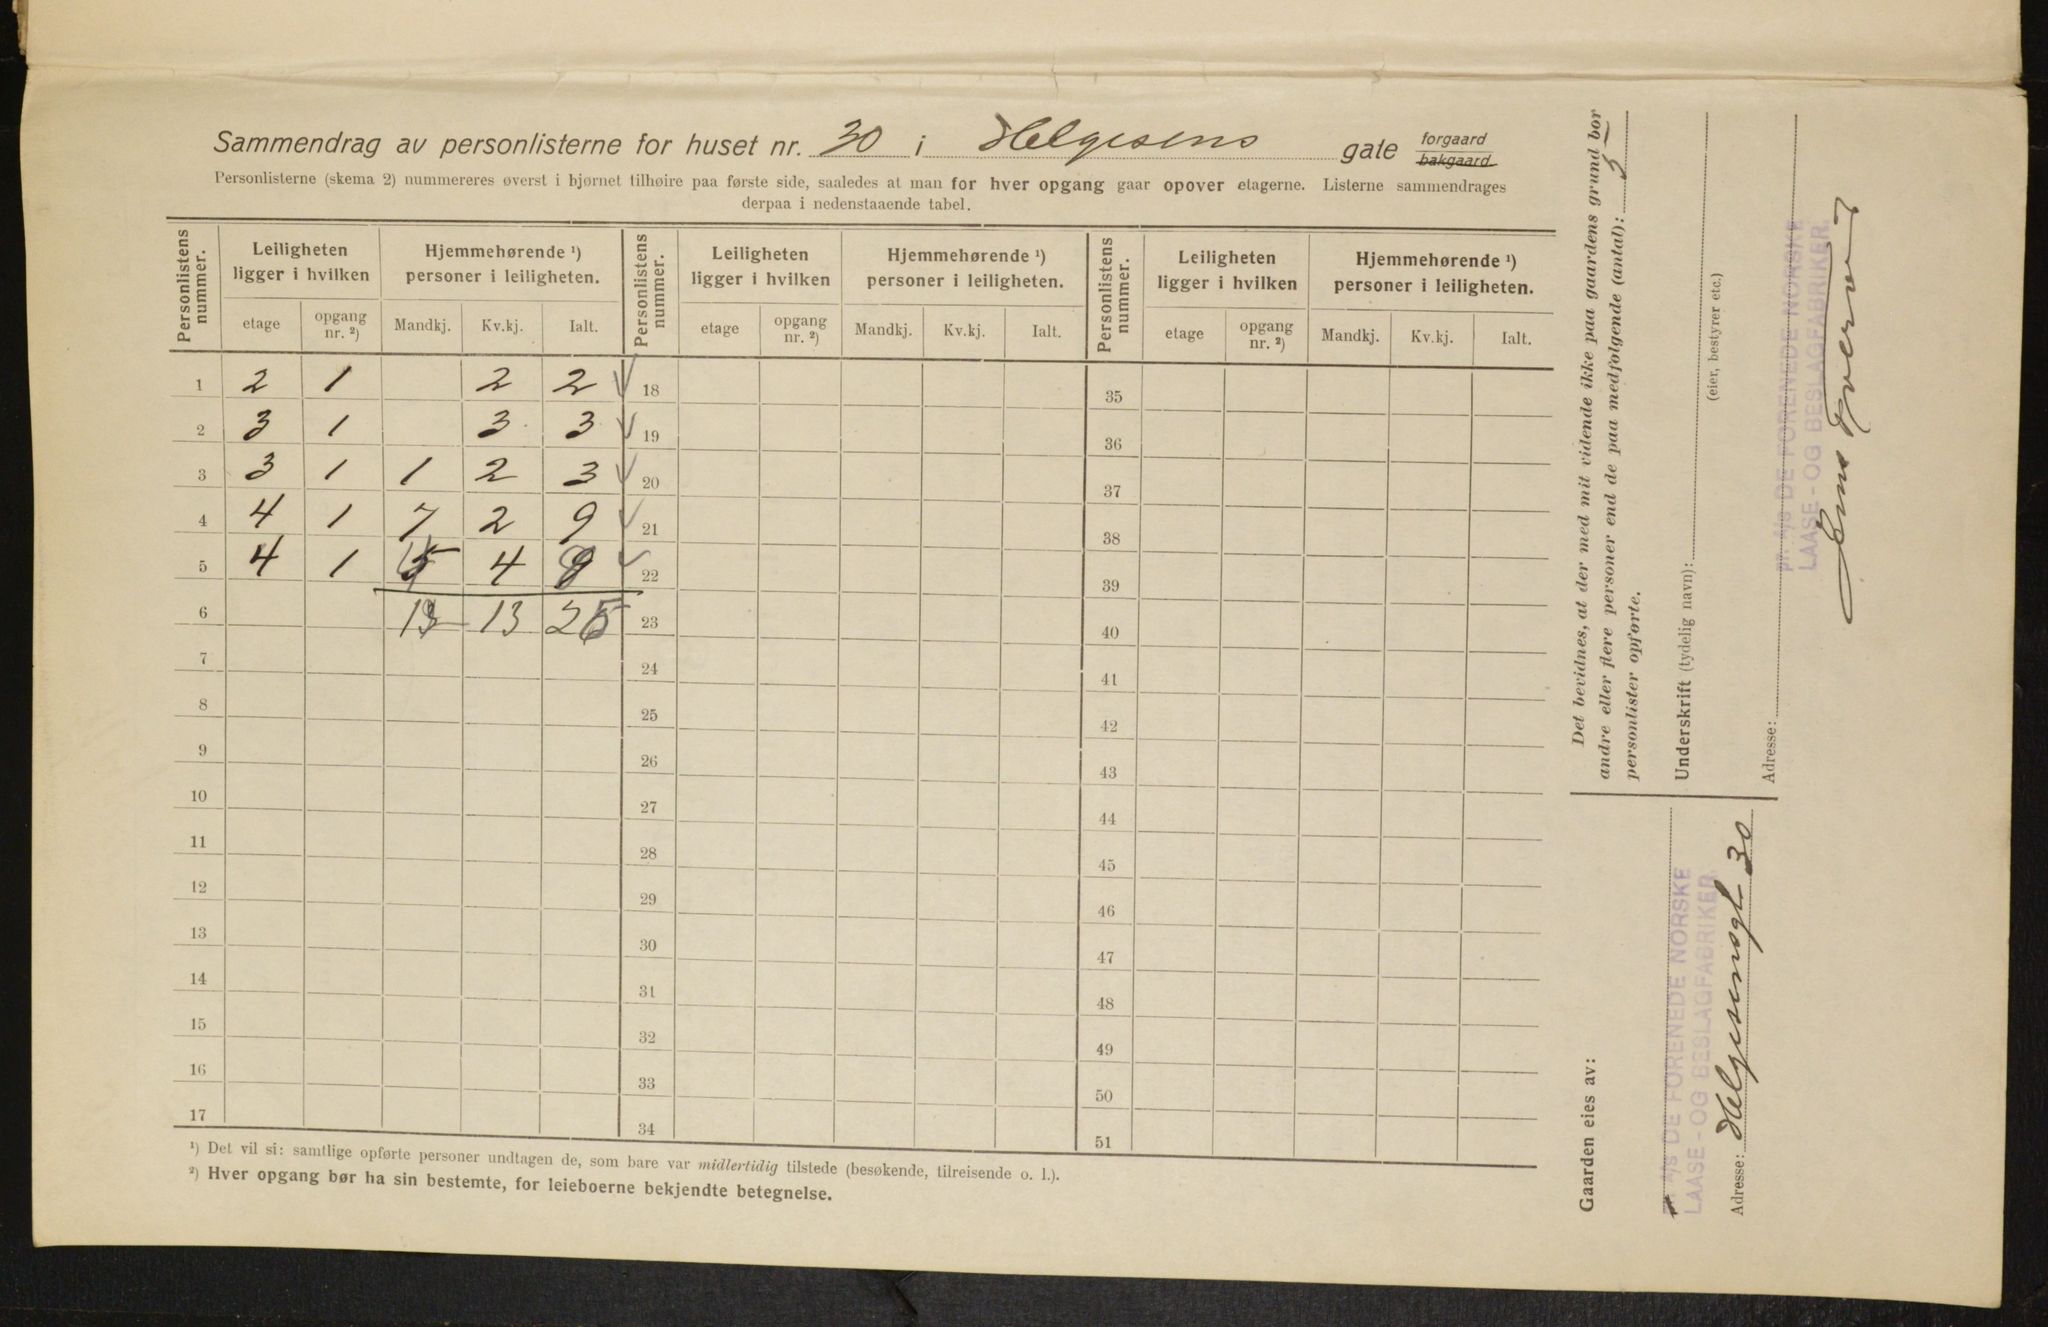 Sammendrag av personlisterne for huset nr. 30 i Helgesens gate forgaard bakgaard
Personlisterne (skema 2) nummereres øverst i bjørnet tilhøire paa første side, saaledes at man for hver opgang gaar opover etagerne. Listerne sammendrages
derpaa i nedenstaaende tabel.
Personlistens nummer. Leiligheten ligger i hvilken Hjemmehørende ¹) personer i leiligheten. Personlistens nummer. Leiligheten ligger i hvilken Hjemmehørende ¹) personer i leiligheten. Personlistens nummer. Leiligheten ligger i hvilken Hjemmehørende ¹) personer i leiligheten.
etage opgang nr. ²) Mandkj. Kv.kj. Ialt. etage opgang nr. ²) Mandkj. Kv.kj. Ialt. etage opgang nr. ²) Mandkj. Kv.kj. Ialt.
1 2 1 2 2 18 35
2 3 1 3 3 19 36
3 3 1 1 2 3 20 37
4 4 1 7 2 9 21 38
5 4 1 4 22 39
6 13 23 40
7 24 41
8 25 42
9 26 43
10 27 44
11 28 45
12 29 46
13 30 47
14 31 48
15 32 49
16 33 50
17 34 51
¹) Det vil si: samtlige opførte personer undtagen de, som bare var midlertidig tilstede (besøkende, tilreisende o. l.).
²) Hver opgang bør ha sin bestemte, for leieboerne bekjendte betegnelse.
Det bevidnes, at der med mit vidende ikke paa gaardens grund bor
andre eller flere personer end de paa medfølgende (antal): 5
personlister opførte.
Underskrift (tydelig navn):
(eier, bestyrer etc.)
Adresse:
pr. A/s DE FORENEDE NORSKE
LAASE- OG BESLAGFABRIKER.
Jens
Gaarden eies av:
A/s DE FORENEDE NORSKE
LAASE- OG BESLAGFABRIKER.
Adresse: Helgesensgt 30